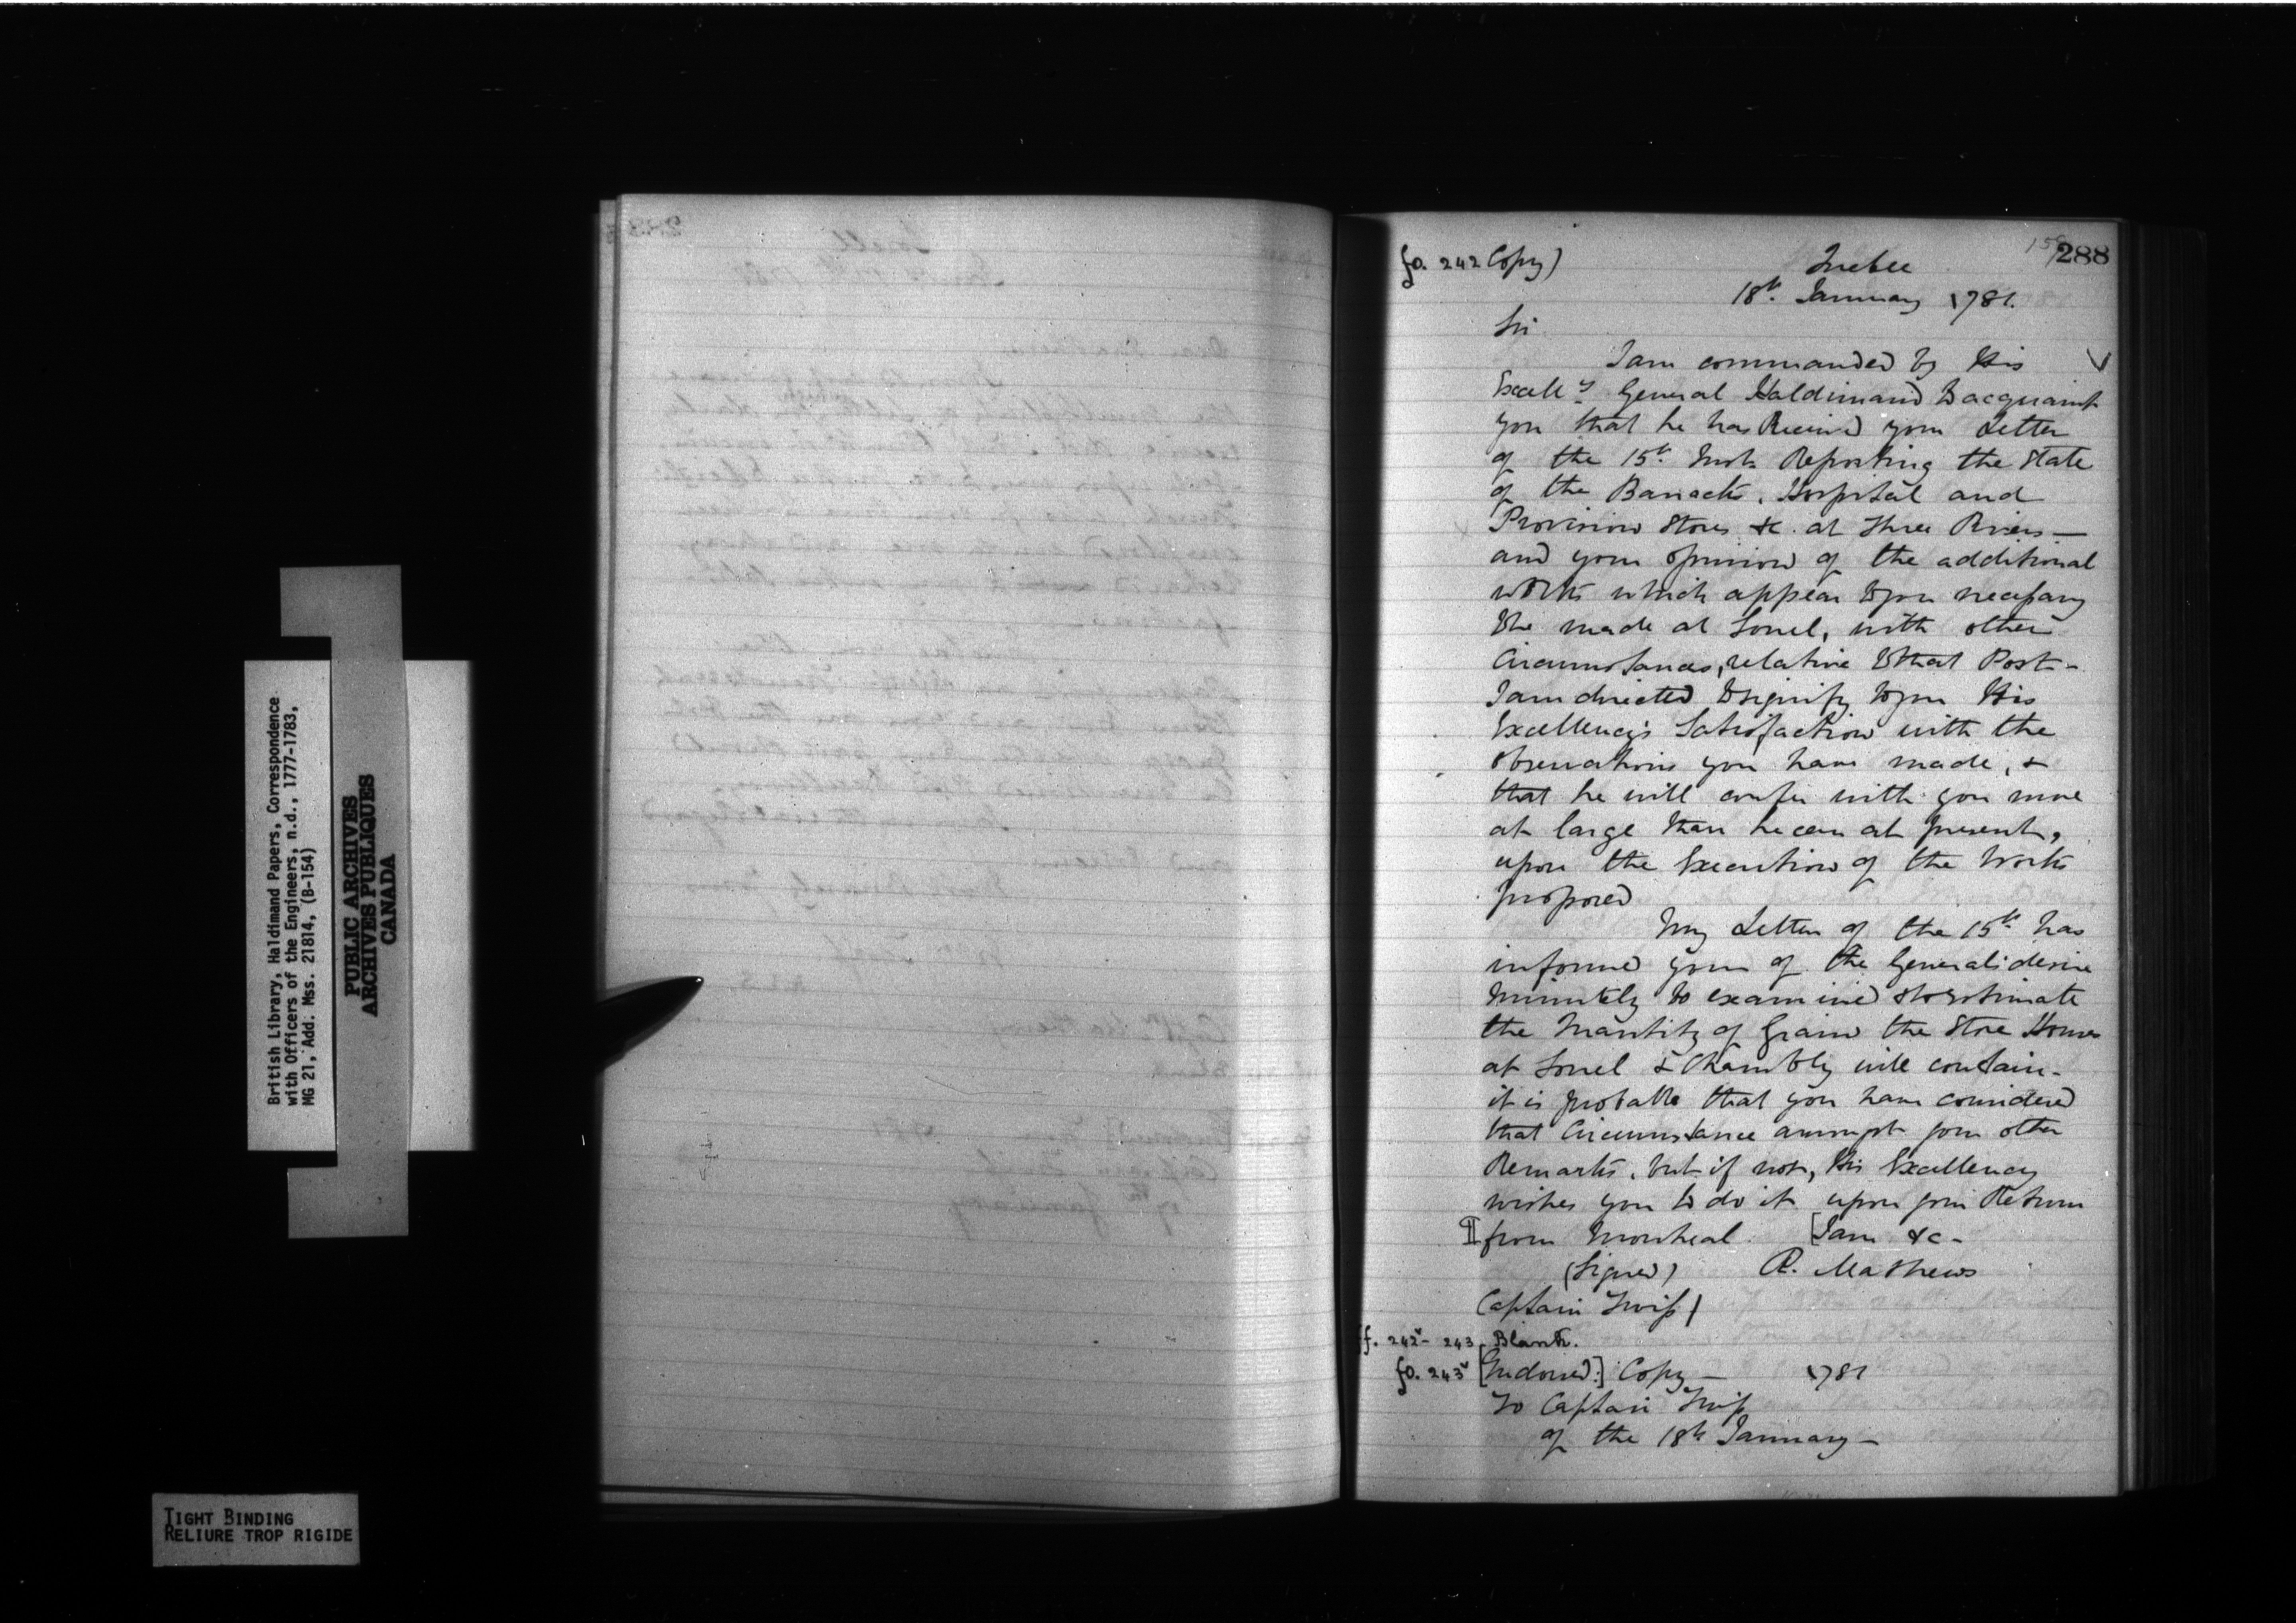 British Library, Haldimand Papers, Correspondence
with Officers of the Engineers, n.d., 1777-1783,
MG 21, Add. Mss. 21814, (B-154)
PUBLIC ARCHIVES
ARCHIVES PUBLIQUES
CANADA
TIGHT BINDING
RELIURE TROP RIGIDE
288
fo. 242 Copy)
Quebec
18th. January 1781.
Sir
I am commanded by His
Excelly General Haldimand to acquaint
you that he has Received your Letter
of the 15th. Inst. Reporting the State
of the Barracks, Hospital and
Provision Stores &c. at Three Rivers—
and your opinion of the additional
works which appear to you necessary
to be made at Sorel, with other
Circumstances, relative to that Post-
I am directed to signify to you His
Excellency's Satisfaction with the
observations you have made, &
that he will confer with you more
at large than he can at present,
upon the Execution of the Works
proposed
My Letter of the 15th has
informed you of the General's desire
minutely to examine & to estimate
the Quantity of Grain the Store Houses
at Sorel & Chambly will contain-
it is probable that you have considered
that Circumstance amongst your other
Remarks, but if not, His Excellency
wishes you to do it upon your Return
from Montreal. [I am &c-
(Signed) R. Mathews
Captain Twiss)
ff. 242v- 243 Blank.
fo. 243v [Endorsed:] Copy — 1781
To Captain Twiss
of the 18th January—